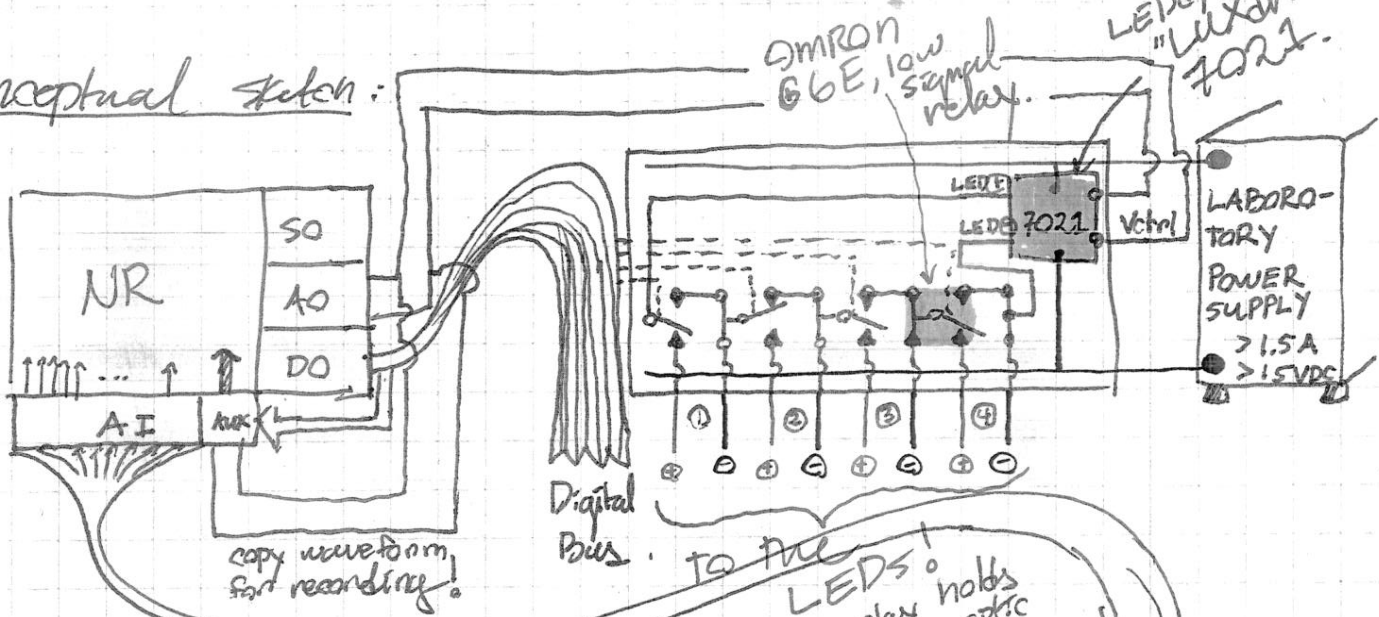 nceptual sketch:
OMRON
G6E, low
signal
relay.
7021.
NR
SO
AO
DO
...
AI
AUX
copy waveform,
for recording!
Digital
Bus.
LED+
LED⊖
7021
Vctrl
LABORO-
TORY
POWER
SUPPLY
>1.5A
>15VDC
① ② ③ ④
⊕ ⊖ ⊕ ⊖ ⊕ ⊖ ⊕ ⊖
TO THE
LEDs!
holds